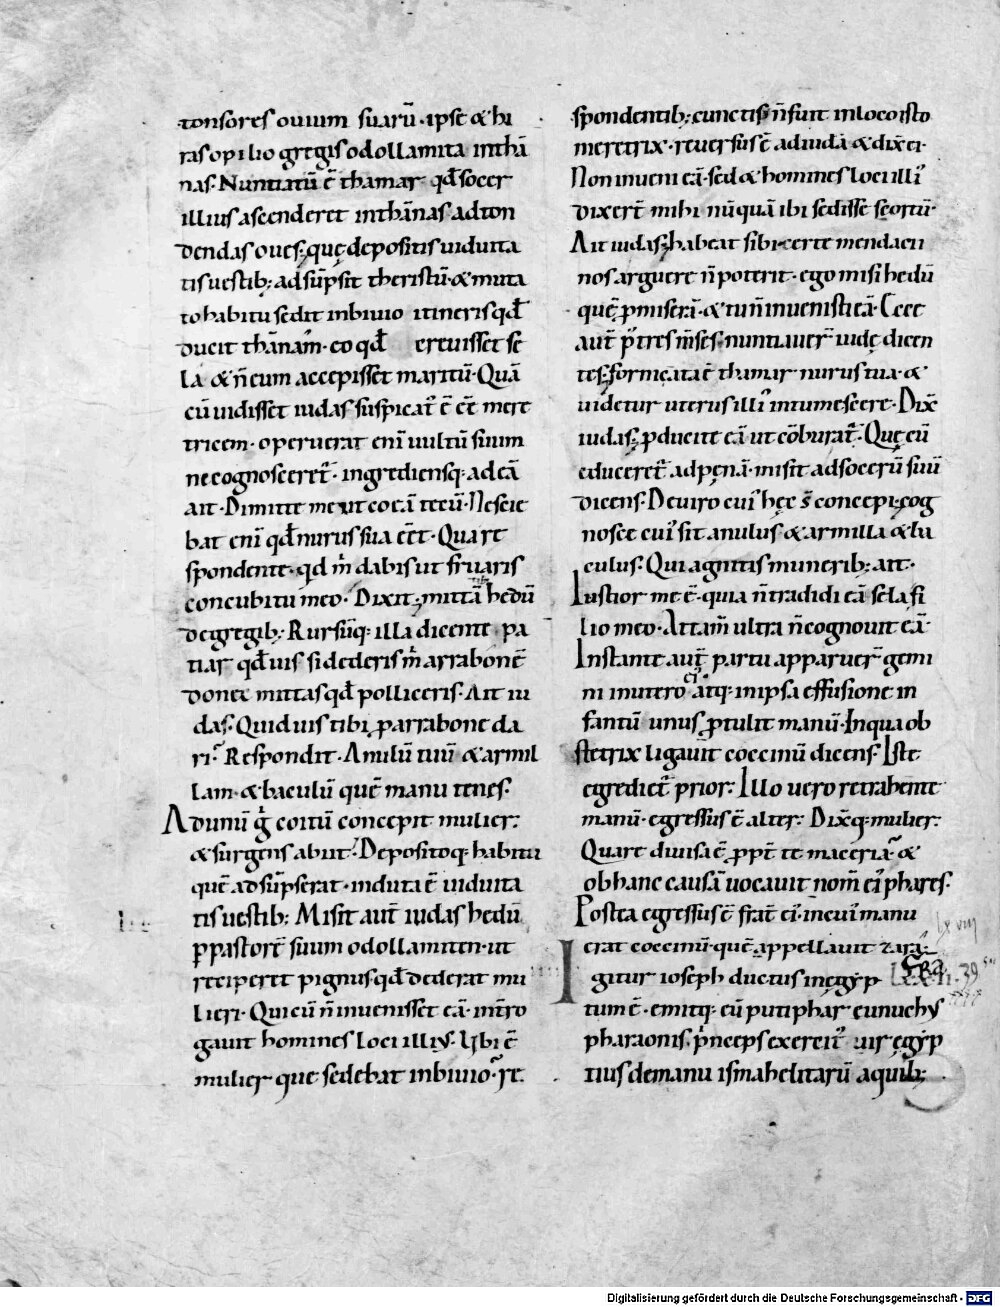 tonsores ouium suarū · ipse & hi
ras opilio gregis odollamita inthā
nas. Nuntiatū ē thamar qd̄ socer
illius ascenderet inthānas ad ton
dendas oues; quę depositis uiduita
tis uestib; adsūpsit theristrū · & muta
to habitu sedit in biuio itineris qd̄
ducit thānam · eo qd̄ creuisset se
la & n̄ eum accepisset maritū · Quā
cū uidisset iudas suspicat᷑ ē eē mere
tricem · operuerat enī uultū suum
ne cognosceret᷑ · ingrediensq; ad eā
ait · Dimitte me ut coeā tecū · Nescie
bat enī qd̄ nurus sua eēt · Qua re
spondente · qd m̄ dabis ut fruaris
concubitu meo · Dixit; mittā tibi hedū
de gregib; Rursūq; illa dicente pa
tiar qd̄ uis si dederis m̄ arrabonē
donec mittas qd̄ polliceris · Ait iu
das · Quid uis tibi ꝑ arrabone da
ri · Respondit · Anulū tuū & armil
lam · & baculū quē manu tenes ·
Ad unū g̊ coitū concepit mulier ·
& surgens abiit · Depositoq; habitu
quē adsūpserat · induta ē uiduita
tis uestib; Misit aut̄ iudas hedū
ꝑ pastorē suum odollamiten · ut
reciperet pignus qd̄ dederat mu
lieri · Qui cū n̄ inuenisset eā · int̄ro
gauit homines loci illius · Ubi ē
mulier quę sedebat in biuio · re
spondentib; cunctis n̄ fuit in loco isto
meretrix · reuersus ē ad iudā & dix ei ·
Non inueni eā · sed & homines loci illi᷒
dixer̄t mihi nūquā ibi sedisse scortū ·
Ait iudas; habeat sibi · certe mendacii
nos arguere n̄ poterit · ego misi hedū
quē ꝓmiserā · & tu n̄ inuenisti eā · Ecce
aut̄ p᷒ tres m̄ses · nuntiauer̄ iudę dicen
tes; fornicata ē thamar nurus tua · &
uidetur uterus illi᷒ intumescere · Dix̄
iudas; ꝓducite eā ut cōburat᷑ · Quę cū
educeret᷑ ad penā · misit ad socerū suū
dicens; De uiro cui᷒ hęc s̄ concepi; cog
nosce cui᷒ sit anulus & armilla & ba
culus · Qui agnitis munerib; ait ·
Iustior me ē · quia n̄ tradidi eā sela fi
lio meo · Attam̄ ultra n̄ cognouit eā ·
Instante aut̄ partu apparuer̄ gemi
ni in utero ei᷒ · atq; in ipsa effusione in
fantū unus ꝓtulit manū · In qua ob
stetrix ligauit coccinū dicens; Iste
egrediet᷑ prior · Illo uero retrahente
manū · egressus ē alter · Dix̄q; mulier ·
Quare diuisa ē ꝓpt̄ te maceria · &
ob hanc causā uocauit nom̄ ei᷒ phares ·
Postea egressus ē frat̄ ei᷒ · in cui᷒ manu
erat coccinū · quē appellauit zarā ·
Igitur ioseph ductus in egyp
tum ē · emitq; eū putiphar eunuchus
pharaonis · p̄nceps exercit᷒ uir egyp
tius de manu ismahelitarū a quib;
Digitalisierung gefördert durch die Deutsche Forschungsgemeinschaft · DFG